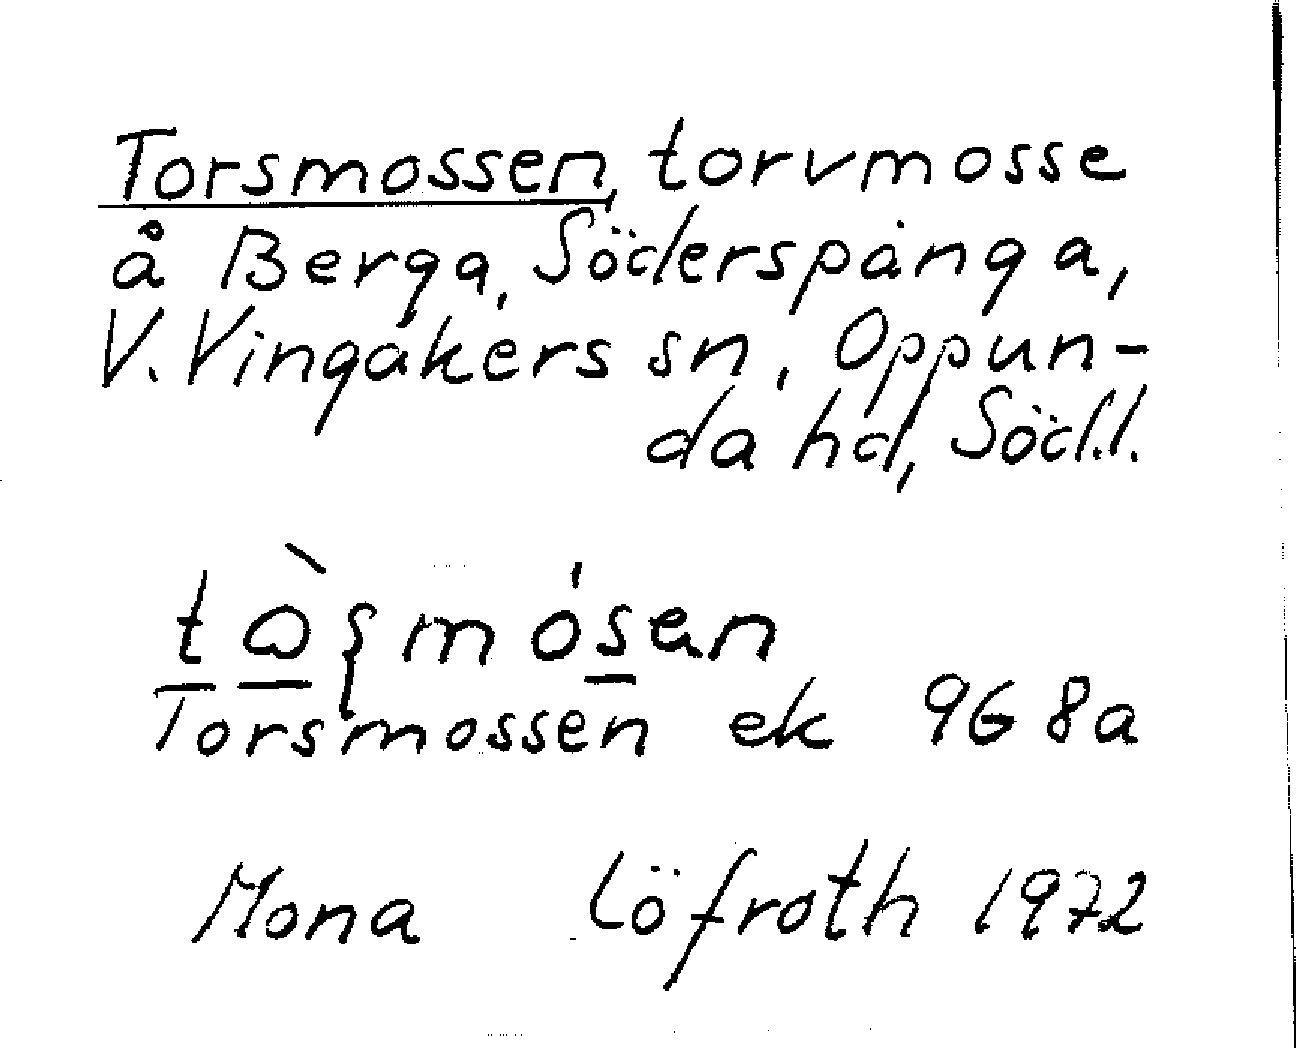 Torsmossen, torvmosse
å Berga, Söderspånga,
V. Vingåkers sn, Oppun-
da hd, Söd.l.
Torsmossen ek 9G 8a
Mona Löfroth 1972